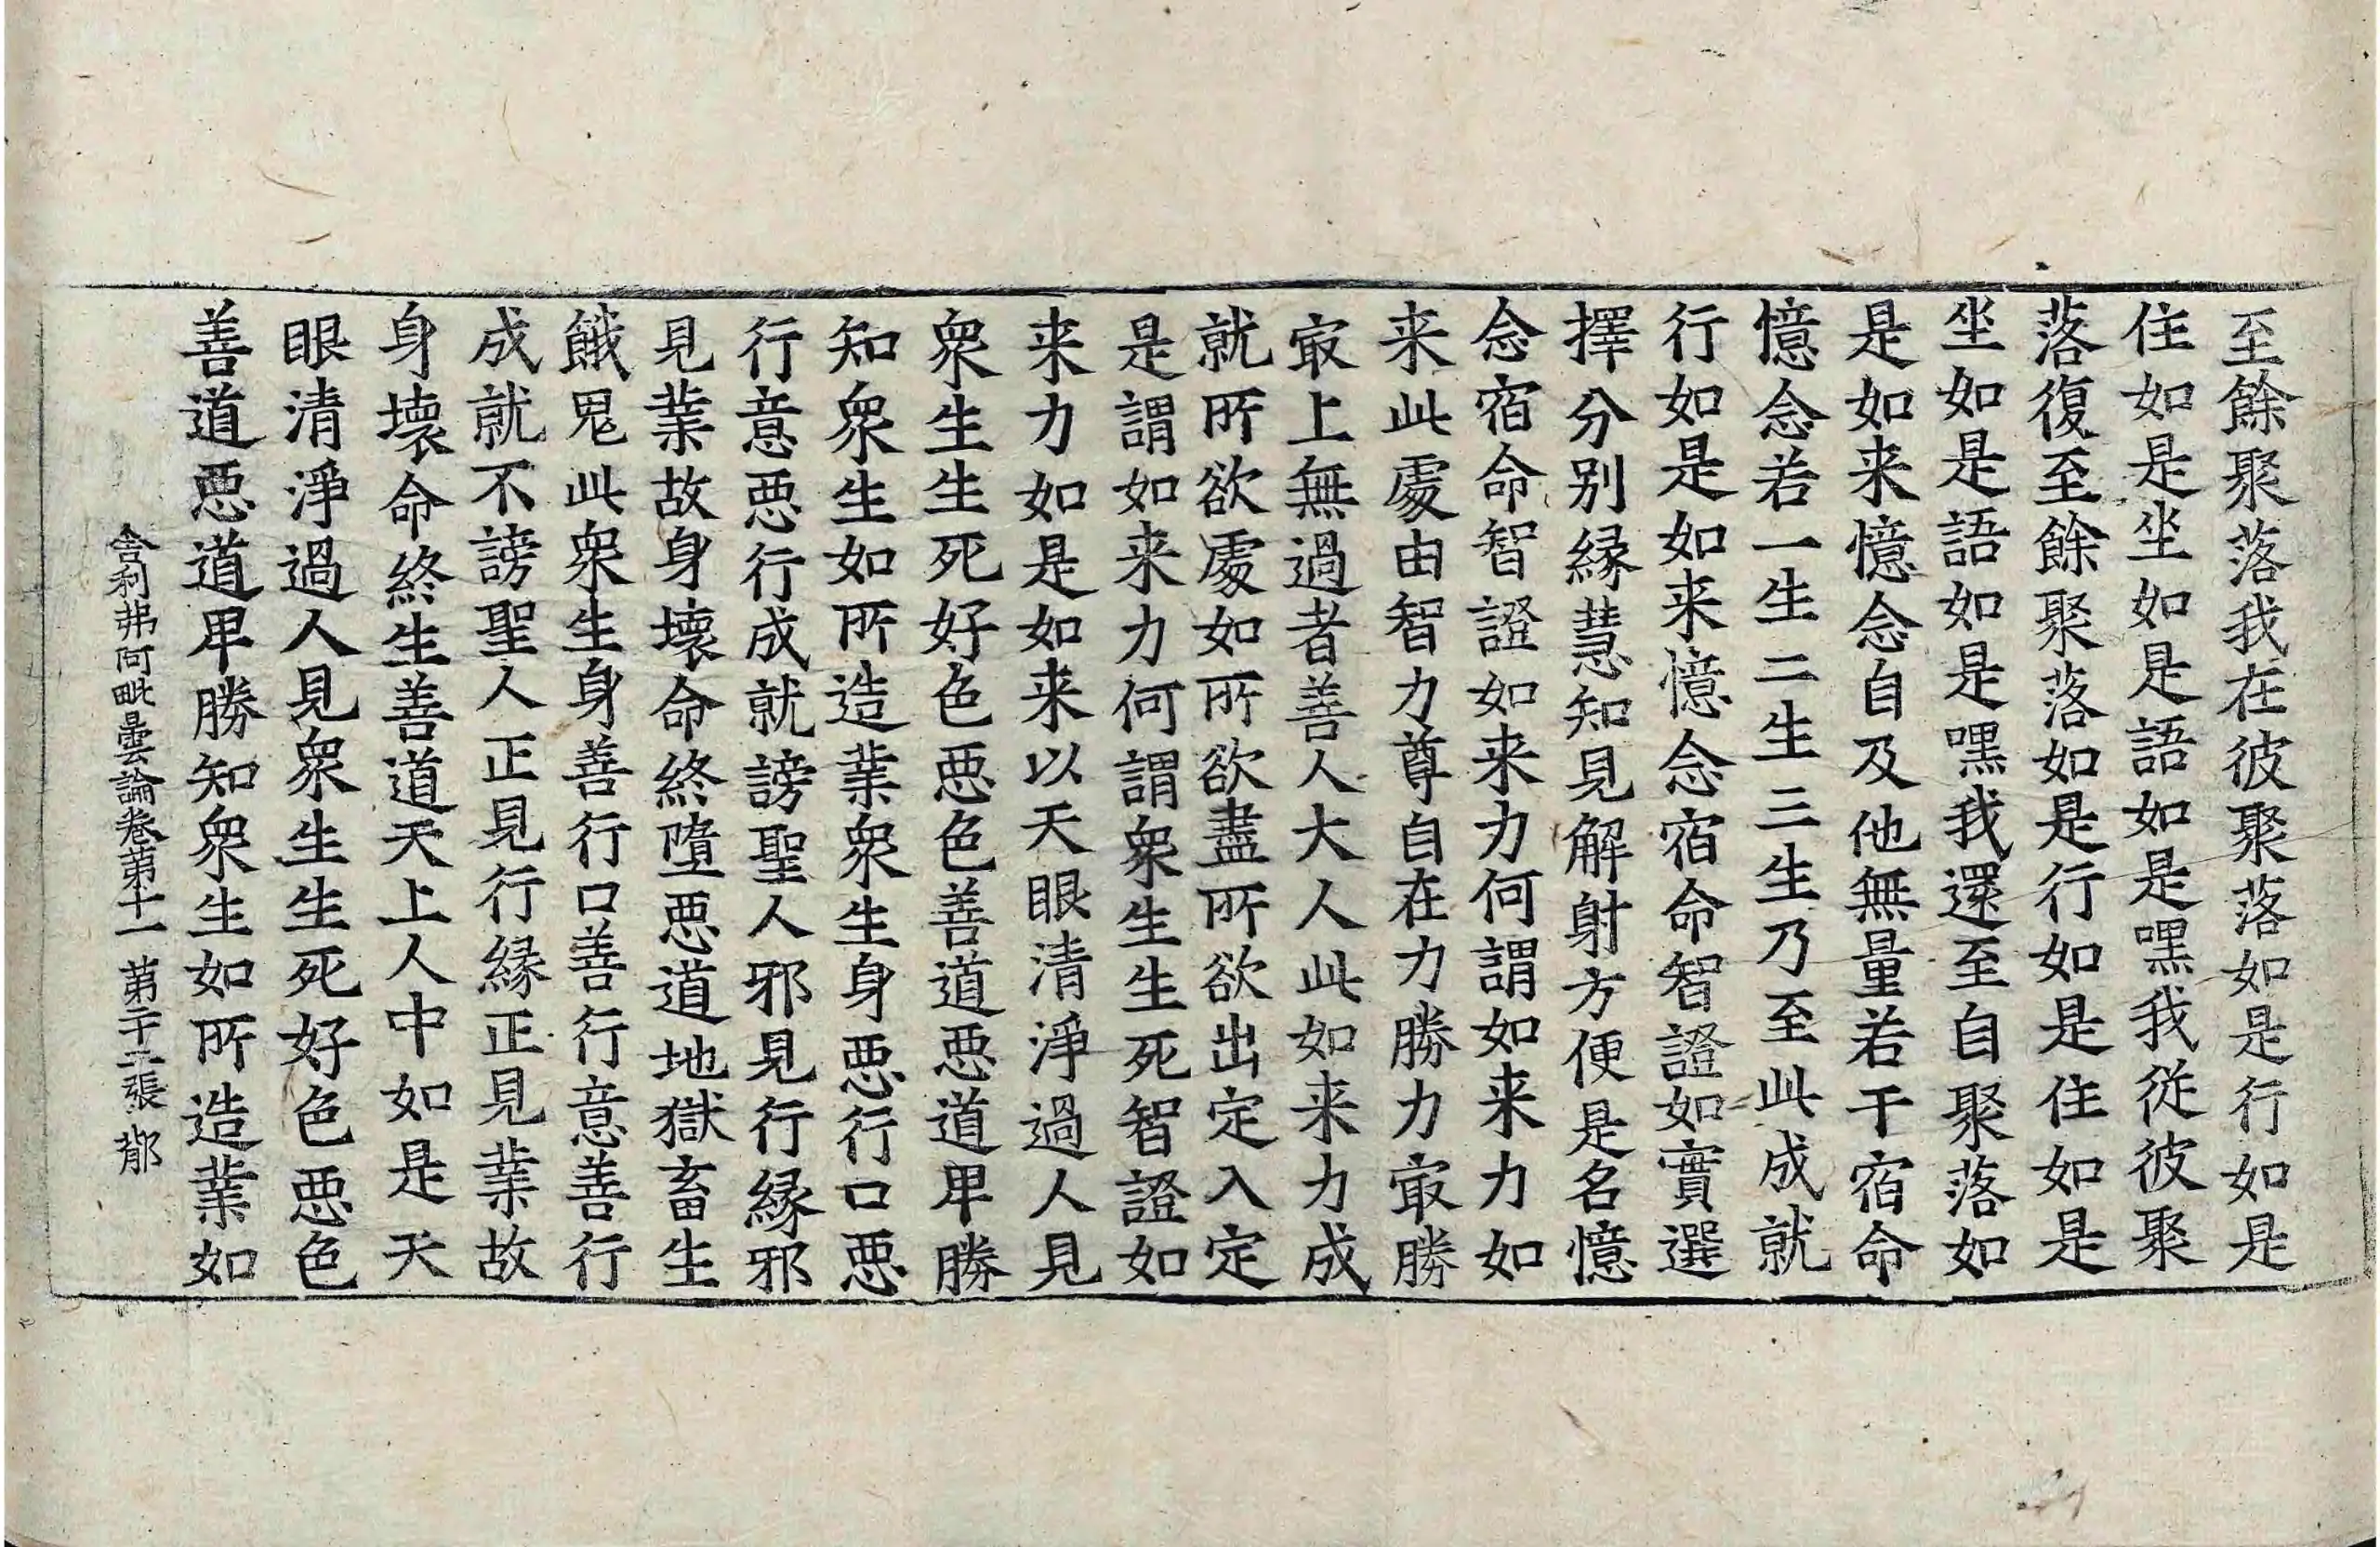 至餘聚落我在彼聚落如是行如是
住如是坐如是語如是嘿我從彼聚
落復至餘聚落如是行如是住如是
坐如是語如是嘿我還至自聚落如
是如来憶念自及他無量若干宿命
憶念若一生二生三生乃至此成就
行如是如来憶念宿命智證如實選
擇分別緣慧知見解射方便是名憶
念宿命智證如来力何謂如来力如
来此處由智力尊自在力勝力㝡勝
㝡上無過者善人大人此如来力成
就所欲處如所欲盡所欲出定入定
是謂如来力何謂衆生生死智證如
来力如是如来以天眼清淨過人見
衆生生死好色惡色善道惡道卑勝
知衆生如所造業衆生身惡行口惡
行意惡行成就謗聖人邪見行緣邪
見業故身壞命終墮惡道地獄畜生
餓鬼此衆生身善行口善行意善行
成就不謗聖人正見行緣正見業故
身壞命終生善道天上人中如是天
眼清淨過人見衆生生死好色惡色
善道惡道卑勝知衆生如所造業如
舎利弗阿毗曇論卷第十一 第二十二張 鄁